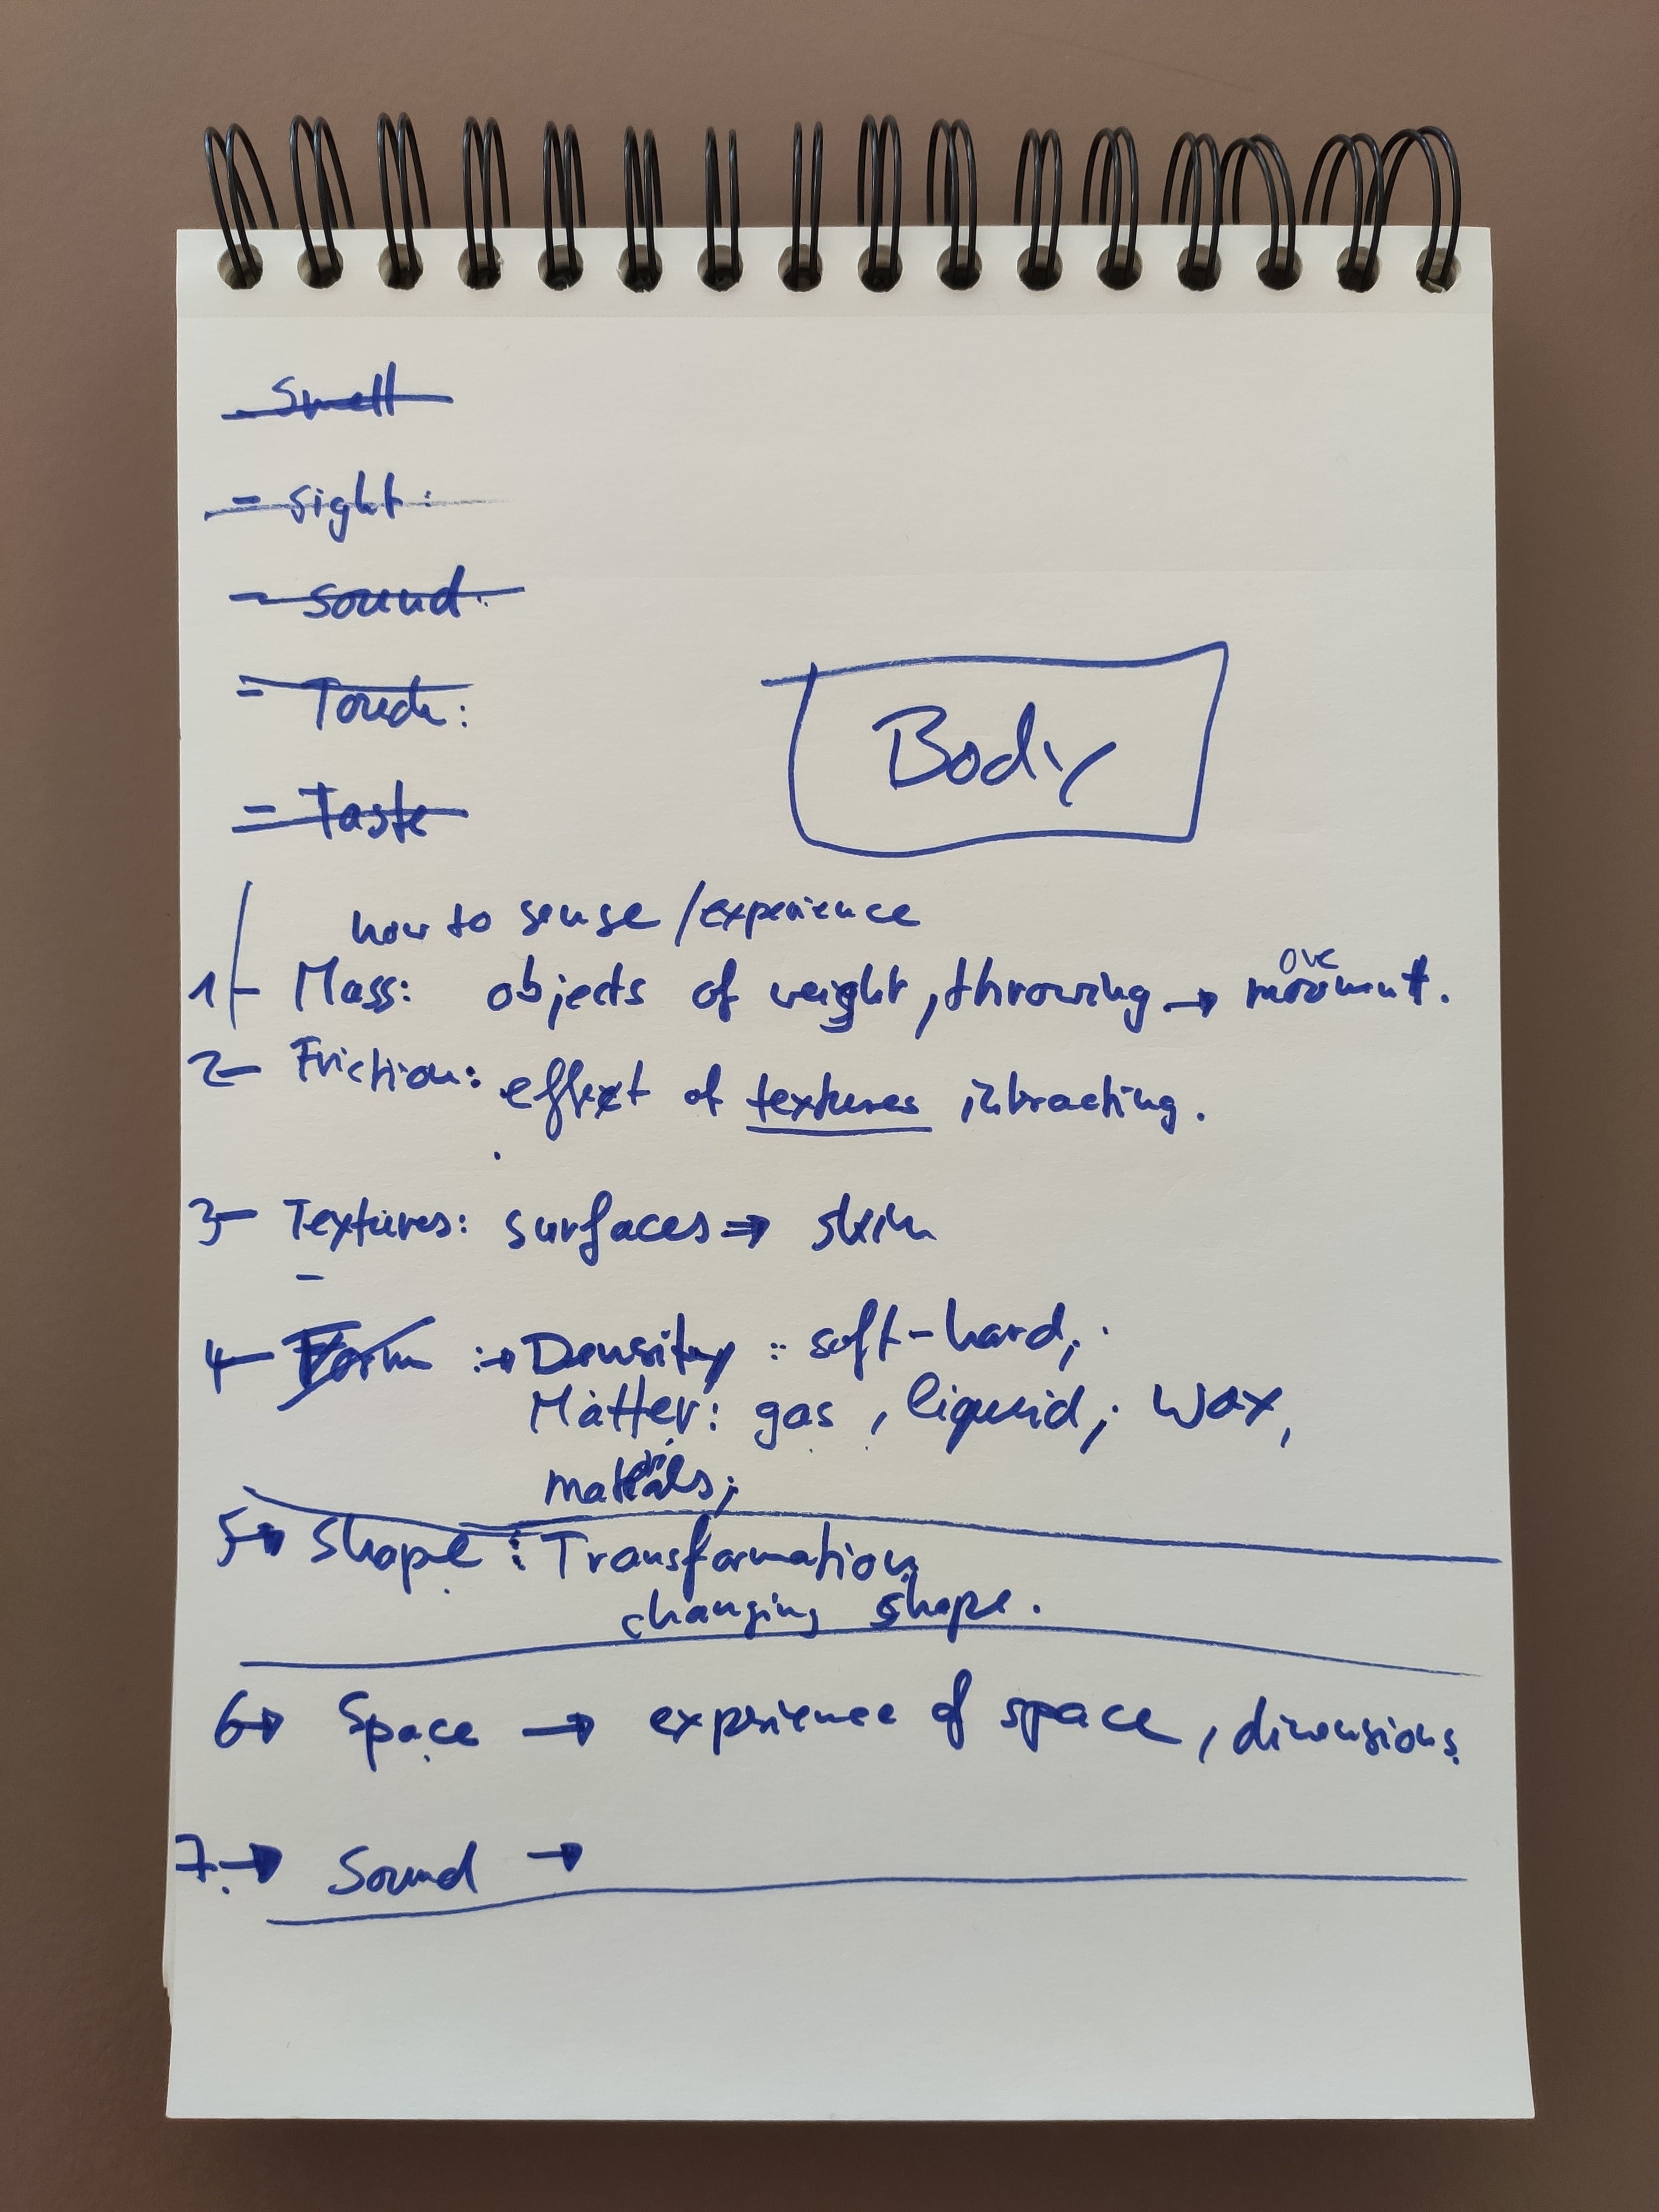 - Smell
- sight:
- sound:
- Touch:
Body
- Taste
how to sense/experience
1- Mass: objects of weight, throwing → movement.
ove
2- Friction: effect of textures interacting.
3- Textures: surfaces ⇒ skin
-
4- Form :→ Density : soft-hard;
Matter: gas, liquid; wax,
materials;
5→ Shape : Transformation,
changing shape.
6→ Space → experience of space, dimensions.
7.→ Sound →